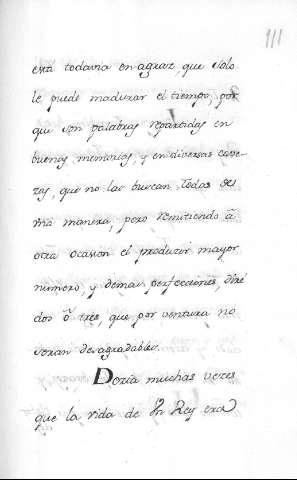 111
esta todavia en agraz, que solo
le puede madurar el tiempo, por
que son palabras repartidas en
buenas memorias, y en diversas cave-
zas, que no las buscan todas de
una manera, pero remitiendo â
otra ocasion el produzir mayor
numero, y demas perfecciones, diré
dos ô tres, que por ventura no
seran desagradables.
Dezia muchas vezes
que la vida de Un Rey era